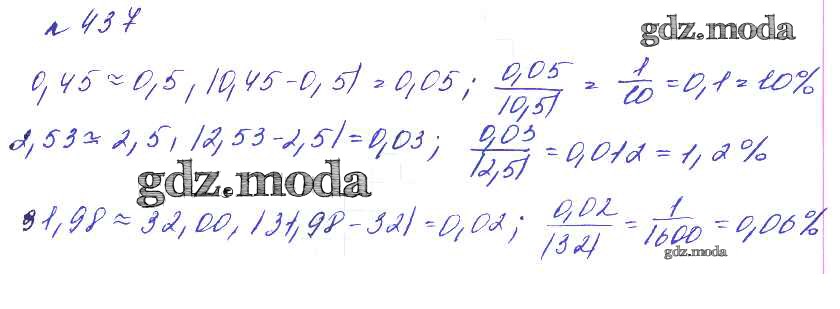 № 437
gdz.moda
0,45 ≈ 0,5, |0,45 - 0,5| = 0,05; 0,05/|0,5| = 1/10 = 0,1 = 10%
2,53 ≈ 2,5, |2,53 - 2,5| = 0,03; 0,03/|2,5| = 0,012 = 1,2%
gdz.moda
31,98 ≈ 32,00, |31,98 - 32| = 0,02; 0,02/|32| = 1/1600 = 0,06%
gdz.moda